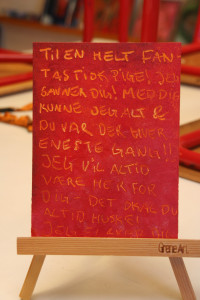 TIL EN HELT FAN
TASTISK PIGE! JEG
SAVNER DIG! MED DIG
KUNNE JEG ALT &
DU VAR DER HVER
ENESTE GANG!!
JEG VIL ALTID
VÆRE HER FOR
DIG - DET SKAL DU
ALTID HUSKE!
JEG